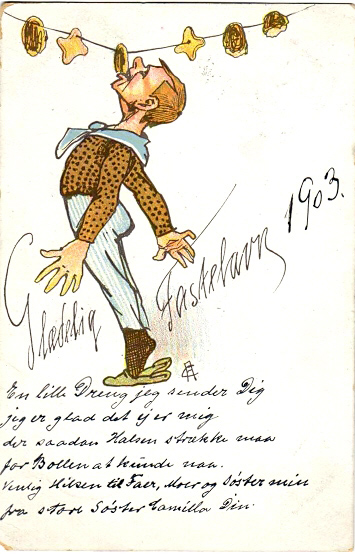 Glædelig Fastelavn 1903.
En lille Dreng jeg sender Dig
jeg er glad det ej er mig
der saadan Halsen strække maa
for Bollen at kunde naa.
Venlig Hilsen til Faer, Moer og Søster min
fra store Søster Camilla Din.